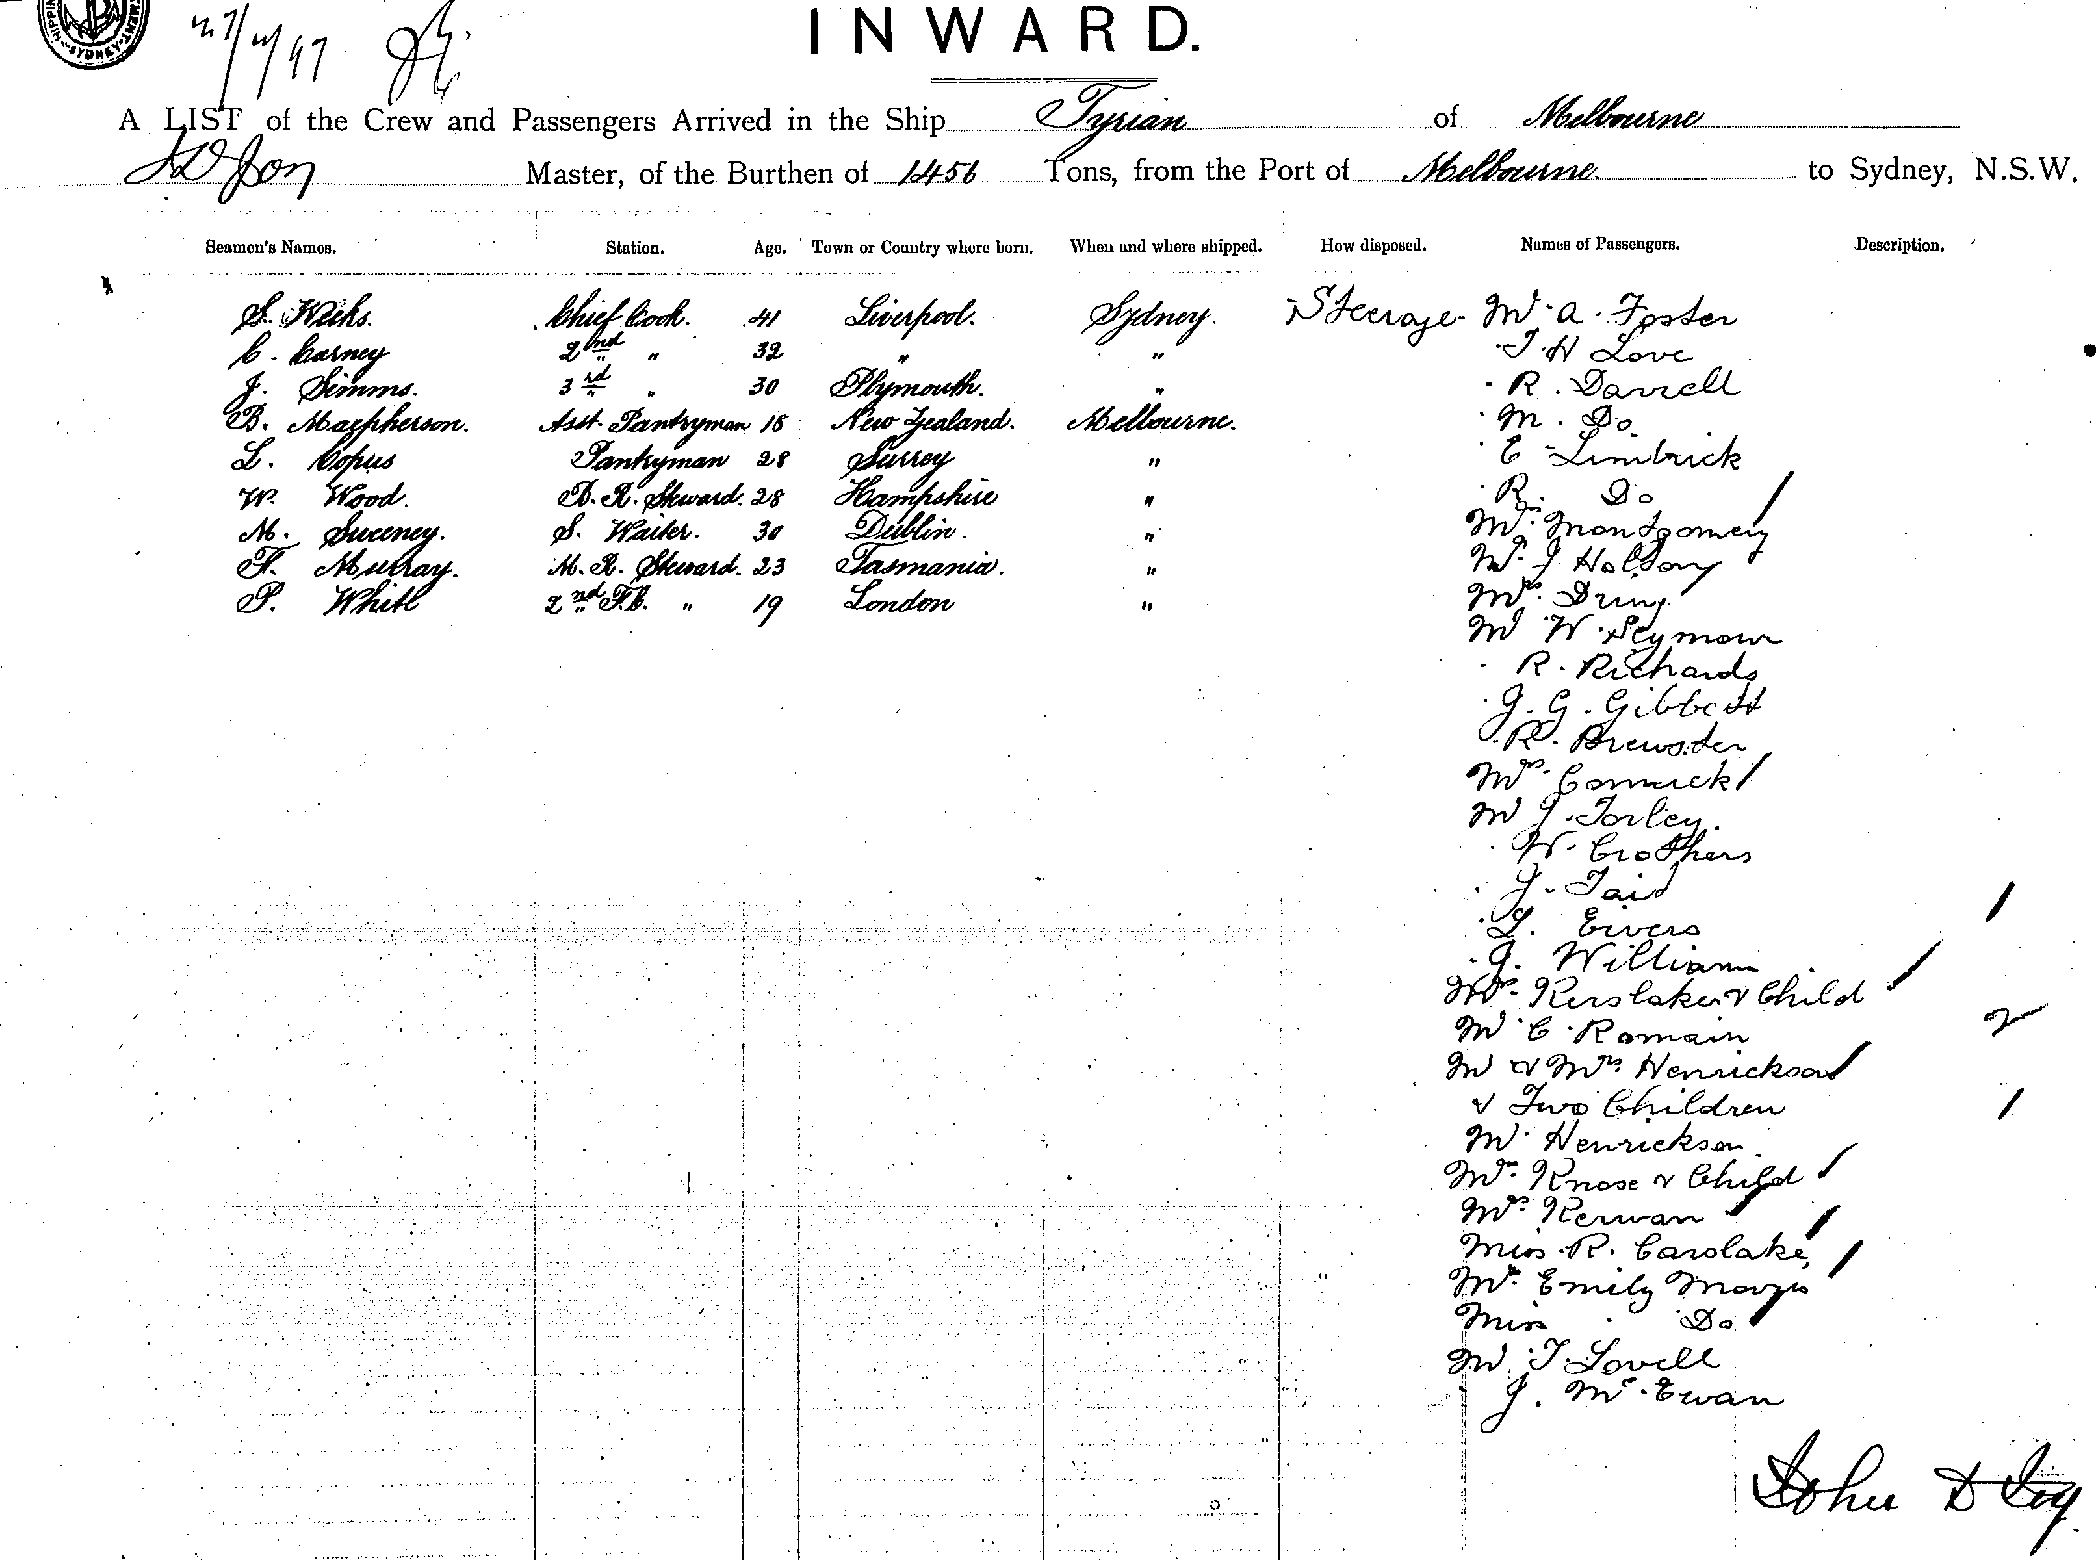 SYDNEY
27/4/97
INWARD.
A LIST of the Crew and Passengers Arrived in the Ship Tyrian of Melbourne
Master, of the Burthen of 1456 Tons, from the Port of Melbourne to Sydney, N.S.W.
Seamen's Names. Station. Age. Town or Country where born. When and where shipped. How disposed. Names of Passengers. Description.
S. Weeks. Chief Cook. 41 Liverpool. Sydney. Steerage - Mr A. Foster
C. Carney 2nd " 32 " " T. H Love
J. Simms. 3rd " 30 Plymouth. " R. Darrell
B. Macpherson. Asst. Pantryman 18 New Zealand. Melbourne. M. Do
L. Copus Pantryman 28 Surrey " E Limbrick
W. Wood. B. R. Steward. 28 Hampshire " R. Do
M. Sweeney. S. Waiter. 30 Dublin. " Mrs Montgomery
F. Murray. M. R. Steward. 23 Tasmania. " Mr J
P. White 2nd F.C. " 19 London " Mrs Dring
Mr W. Seymour
R. Richards
J. G. Gibbett
R. Brewster
Mrs Cormick
Mr J. Torley.
W. Crothers
J. Taid
L. Eivers
J. William
Mrs Kerslake & Child
Mr C. Romain 2
Mr & Mrs Henrickson
& Two Children 1
Mr Henrickson.
Mrs Knose & Child
Mrs Kerwan
Miss R. Carslake
Mrs Emily
Miss Do
Mr T. Lovell
J. McEwan
John D